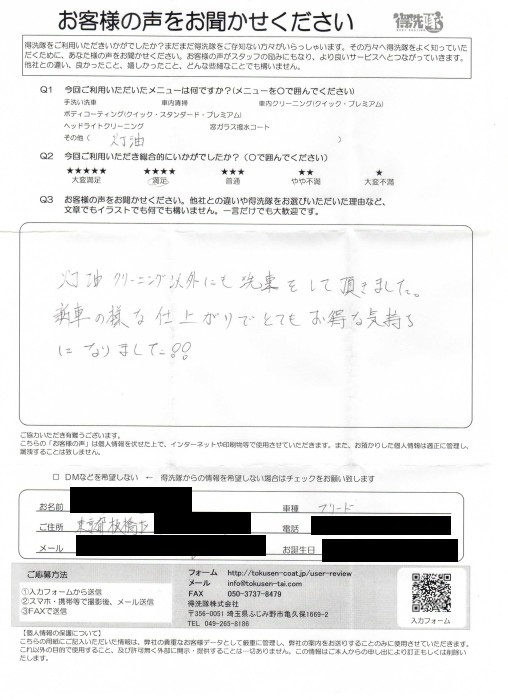 お客様の声をお聞かせください
得洗隊
得洗隊をご利用いただきいかがでしたか？まだまだ得洗隊をご存知ない方々がいらっしゃいます。その方々へ得洗隊をよく知っていた
だくために、あなた様の声をお聞かせください。お客様の声がスタッフの励みにもなり、より良いサービスへとつながっていきます。
他社との違い、良かったこと、嬉しかったこと、どんな些細なことでも構いません。
Q1 今回ご利用いただいたメニューは何ですか？(メニューを○で囲んでください)
手洗い洗車 車内清掃 車内クリーニング(クイック・プレミアム)
ボディコーティング(クイック・スタンダード・プレミアム)
ヘッドライトクリーニング 窓ガラス撥水コート
その他( 灯油 )
Q2 今回ご利用いただき総合的にいかがでしたか？(○で囲んでください)
★★★★★ ★★★★ ★★★ ★★ ★
大変満足 満足 普通 やや不満 大変不満
Q3 お客様の声をお聞かせください。他社との違いや得洗隊をお選びいただいた理由など、
文章でもイラストでも何でも構いません。一言だけでも大歓迎です。
灯油クリーニング以外にも洗車をして頂きました。
新車の様な仕上がりでとてもお得な気持ち
になりました!!
ご協力いただき有難うございます。
こちらの「お客様の声」は個人情報を伏せた上で、インターネットや印刷物等で使用させていただきます。また、お預かりした個人情報は適正に管理し、
漏洩することは致しません。
□ DMなどを希望しない ← 得洗隊からの情報を希望しない場合はチェックをお願い致します
お名前 車種 フリード
ご住所 東京都板橋区 電話
メール お誕生日
ご応募方法
①入力フォームから送信
②スマホ・携帯等で撮影後、メール送信
③FAXで送信
フォーム http://tokusen-coat.jp/user-review
メール info@tokusen-tai.com
FAX 050-3737-8479
得洗隊株式会社
〒356-0051 埼玉県ふじみ野市亀久保1669-2
TEL 049-265-8186
入力フォーム
【個人情報の保護について】
こちらの用紙にご記入いただいた情報は、弊社の貴重なお客様データとして厳重に管理し、弊社の案内をお送りすることのみに使用させていただきます。
これ以外の目的で使用すること、及び許可無く外部に開示・提供することは一切ありません。この情報はご本人からの申し出により訂正もしくは削除い
たします。